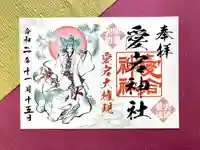 奉拝
愛宕神社
愛宕大権現
令和二年十二月十五日